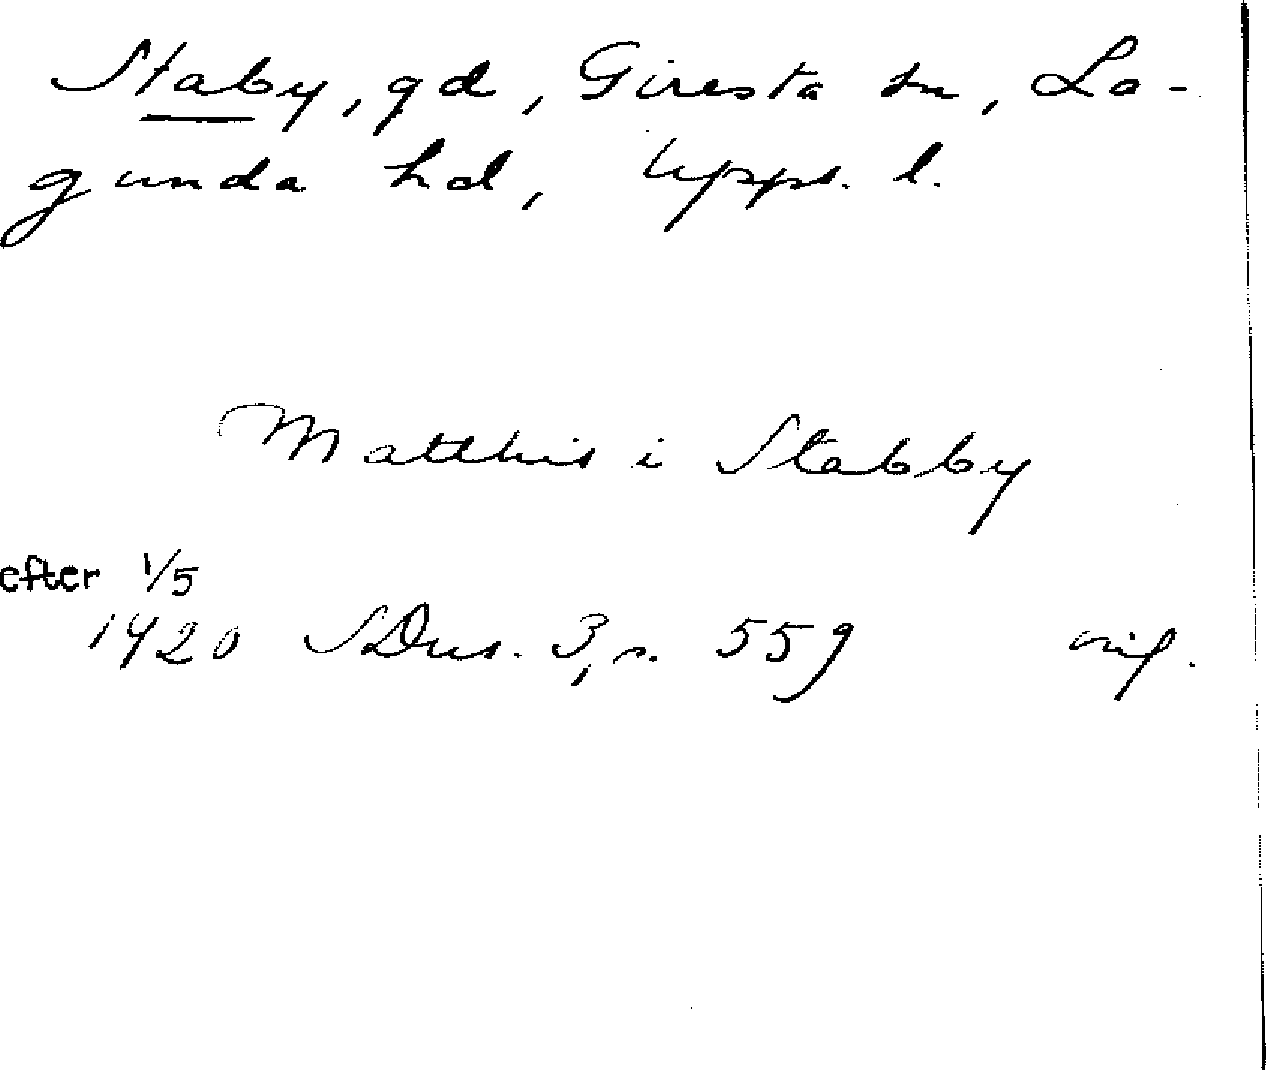 Staby, gd, Giresta sn, La-
gunda hd, Upps. l.
Matthis i Stabby
efter 1/5
1420 SDns. 3, s. 559